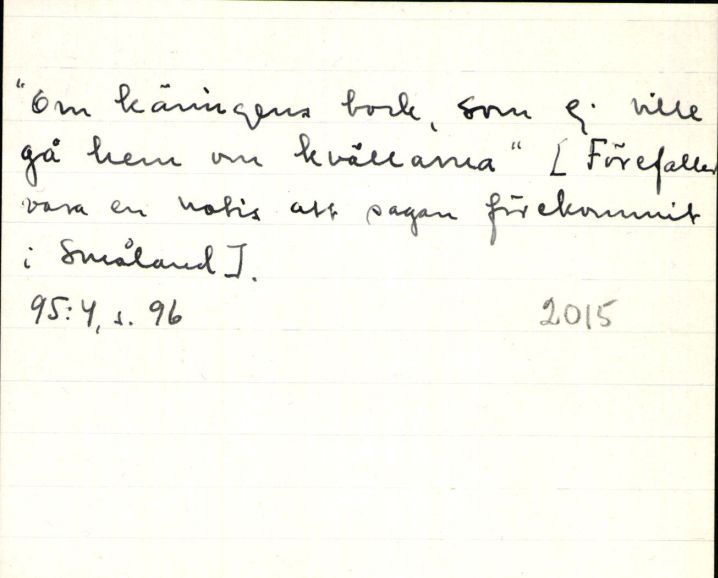 "Om käringens bock, som ej ville
gå hem om kvällarna" [Förefaller
vara en notis att sagan förekommit
i Småland].
95:4, s. 96 2015